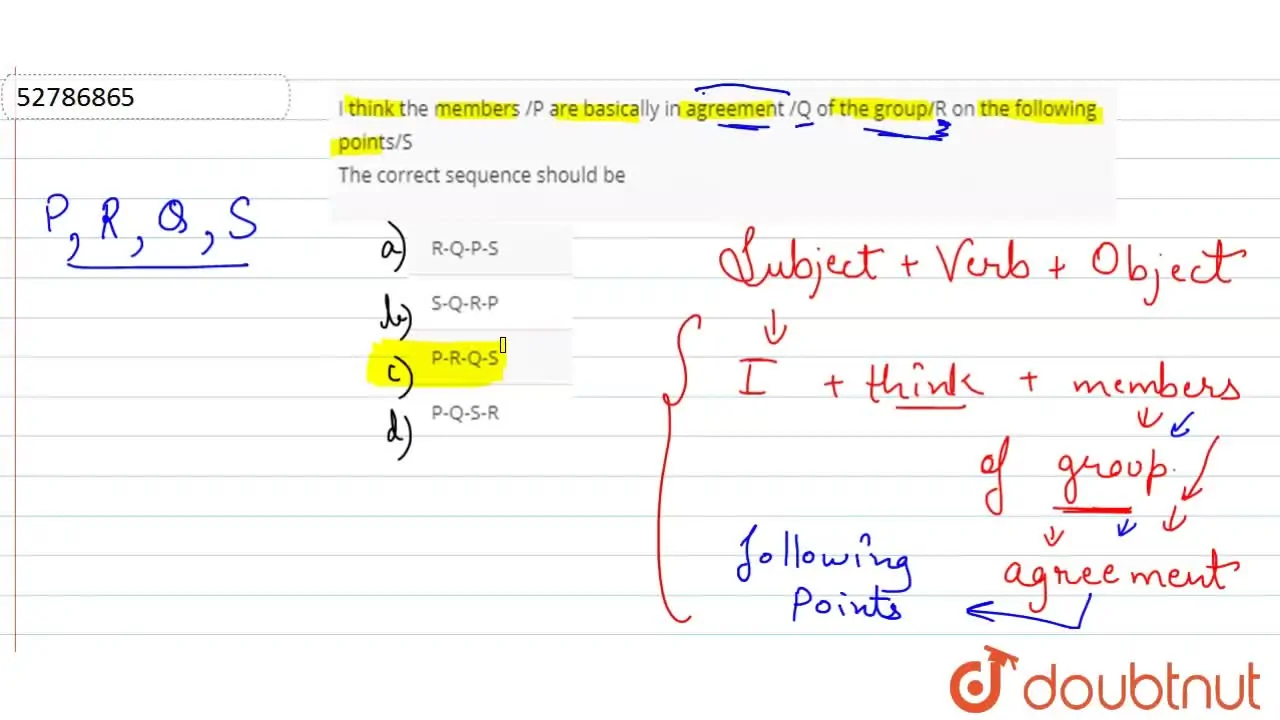 52786865
I think the members /P are basically in agreement /Q of the group/R on the following
points/S
The correct sequence should be
P, R, Q, S
a) R-Q-P-S
b) S-Q-R-P
c) P-R-Q-S
d) P-Q-S-R
Subject + Verb + Object
I + think + members
of group
agreement
following
Points
doubtnut